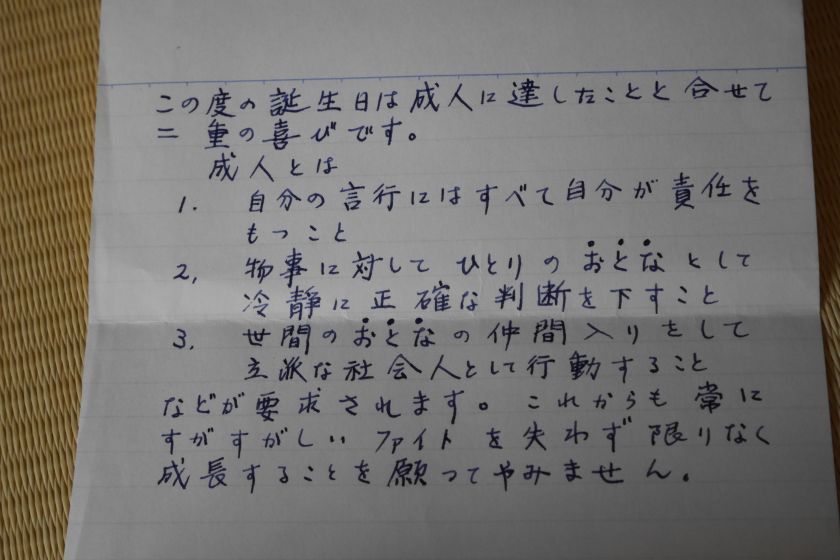 この度の誕生日は成人に達したことと合せて
二重の喜びです。
成人とは
1. 自分の言行にはすべて自分が責任を
もつこと
2, 物事に対して ひとりのおとなとして
冷静に正確な判断を下すこと
3. 世間のおとなの仲間入りをして
立派な社会人として行動すること
などが要求されます。これからも常に
すがすがしいファイトを失わず限りなく
成長することを願ってやみません.